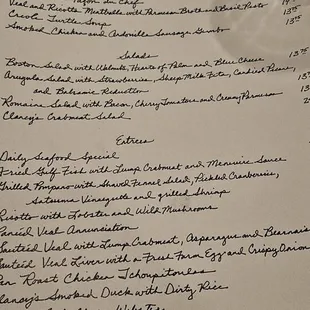 du Chef
Veal and Ricotta Meatballs with Parmesan Broth and Basil Pesto
Creole Turtle Soup 13.75
Smoked Chicken and Andouille Sausage Gumbo 13.75
Salads
Boston Salad with Walnuts, Hearts of Palm and Blue Cheese 13.75
Arugula Salad with Strawberries, Sheep Milk Feta, Candied Pecans,
and Balsamic Reduction
Romaine Salad with Bacon, Cherry Tomatoes and Creamy Parmesan
Clancy's Crabmeat Salad
Entrees
Daily Seafood Special
Fried Gulf Fish with Lump Crabmeat and Meuniere Sauce
Grilled Pompano with Shaved Fennel Salad, Pickled Cranberries,
Satsuma Vinaigrette and grilled Shrimp
Risotto with Lobster and Wild Mushrooms
Paneed Veal Annunciation
Sautéed Veal with Lump Crabmeat, Asparagus and Bearnaise
Sautéed Veal Liver with a Fresh Farm Egg and Crispy Onion
Pan Roast Chicken Tchoupitoulas
Clancy's Smoked Duck with Dirty Rice